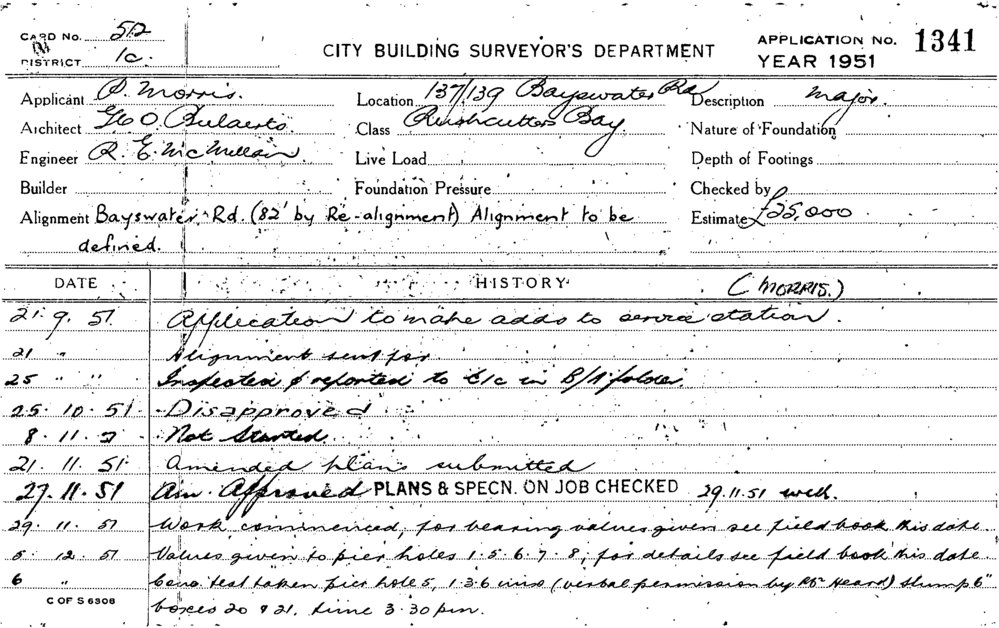 CARD No. 512
CITY BUILDING SURVEYOR'S DEPARTMENT
APPLICATION No. 1341
DISTRICT 1c.
YEAR 1951
Applicant P. Morris.
Location 137/139 Bayswater Rd
Description Major.
Architect Geo.
Class Rushcutters Bay
Nature of Foundation
Engineer R. E. McMillan
Live Load
Depth of Footings
Builder
Foundation Pressure
Checked by
Alignment Bayswater Rd. (82' by Re-alignment) Alignment to be
defined.
Estimate £25,000
DATE HISTORY (MORRIS.)
21. 9. 51 Application to make adds to service station.
21 " Alignment sent for
25 " " Inspected & reported to E/c in B/A folder
25. 10. 51 Disapproved
8. 11. Not Started
21. 11. 51 Amended plans submitted
27. 11. 51 Am. Approved PLANS & SPECN. ON JOB CHECKED 29.11.51
29. 11. 51 Work commenced, for bearing values given see field book this date
5. 12. 51 Values given to pier holes 1. 5. 6. 7. 8, for details see field book this date
6 " test taken pier hole 5, 1.3.6 (verbal permission by Mr Heard) Slump 6"
boxes 20 & 21. time 3.30 pm.
C OF S 6308